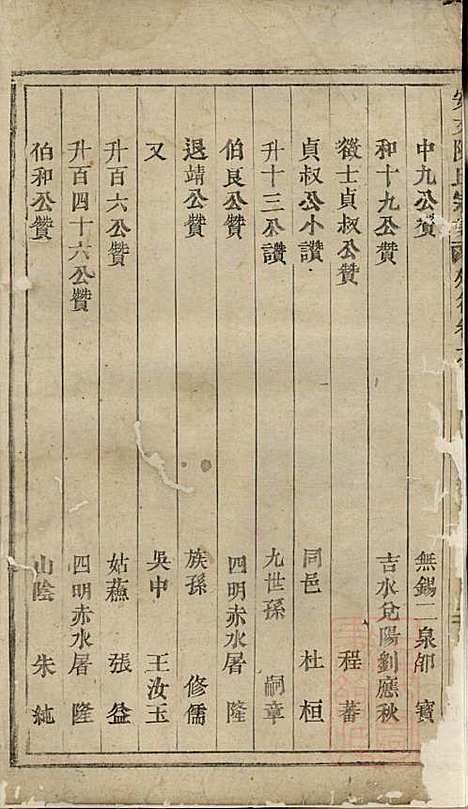 中九公贊 無錫二泉邵 寳
和十九公贊 吉水兌陽劉應秋
徵士貞叔公贊 程蕃
貞叔公小讃 同邑 杜桓
升十三公讃 九世孫 嗣章
伯良公贊 四明赤水屠 隆
退靖公贊 族孫 修儒
又 吳中 王汝玉
升百六公贊 姑蘓 張益
升百四十六公贊 四明赤水屠 隆
伯和公贊 山陰 朱純